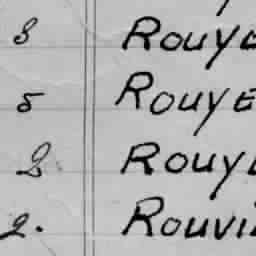 3 ROUY
5 ROUYE
2 ROUY
2. ROUVI